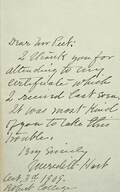 Dear Mr Peet:
I thank you for
attending to my
certificate which
I received last even.
It was most kind
of you to take this
trouble.
Very Sincerely
Meredith Hart
Oct. 3rd 1909.
Robert College